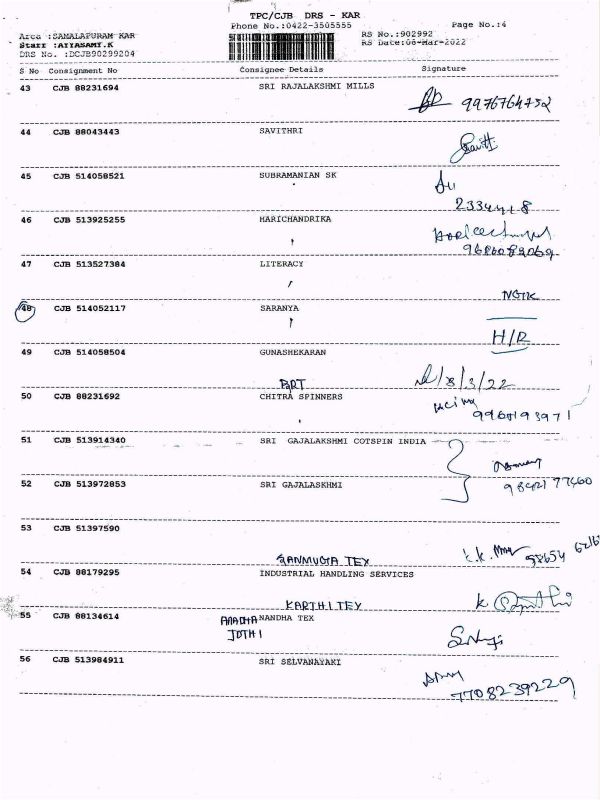 TPC/CJB DRS - KAR
Phone No.:0422-3505555 Page No.:4
Area :SAMALAPURAM KAR RS No.:902992
Staff :AIYASAMY.K RS Date:08-Mar-2022
DRS No. :DCJB90299204
S No Consignment No Consignee Details Signature
43 CJB 88231694 SRI RAJALAKSHMI MILLS
9976764752
44 CJB 88043443 SAVITHRI
45 CJB 514058521 SUBRAMANIAN SK
2334418
46 CJB 513925255 HARICHANDRIKA
47 CJB 513527384 LITERACY
48 CJB 514052117 SARANYA
H/R
49 CJB 514058504 GUNASHEKARAN
8/3/22
50 CJB 88231692 CHITRA SPINNERS
51 CJB 513914340 SRI GAJALAKSHMI COTSPIN INDIA
52 CJB 513972853 SRI GAJALASKHMI
98421 77460
53 CJB 51397590
SANMUGA TEX
54 CJB 88179295 INDUSTRIAL HANDLING SERVICES
KARTHI TEX
55 CJB 88134614 NANDHA TEX
JOTHI
56 CJB 513984911 SRI SELVANAYAKI
7708239229